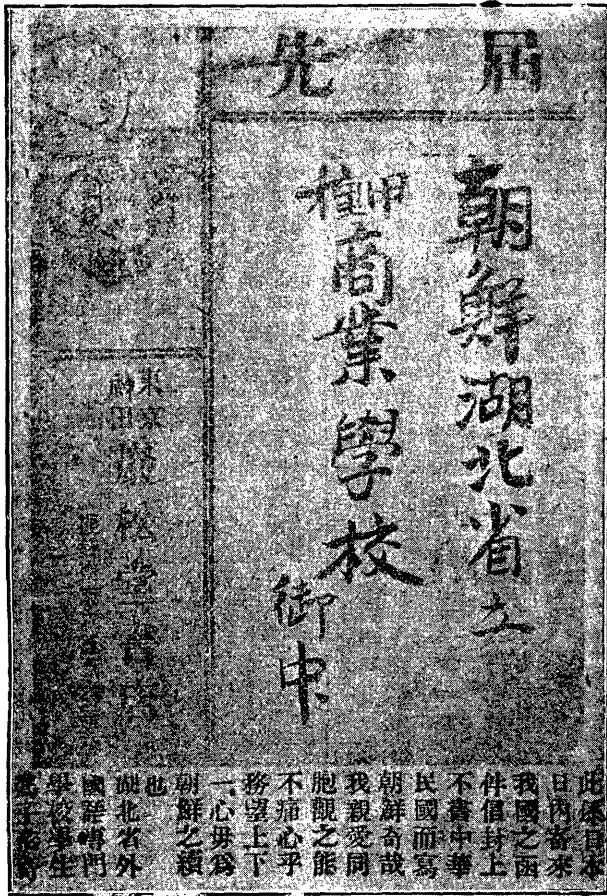 届先
朝鮮湖北省立
甲種商業學校
御中
東京
神田
慶松堂
此係日本
日內寄來
我國之函
件倡封上
不書中華
民國而寫
朝鮮奇哉
我親愛同
胞觀之能
不痛心乎
務望上下
一心毋爲
朝鮮之續
也
湖北省外
國語專門
學校學生